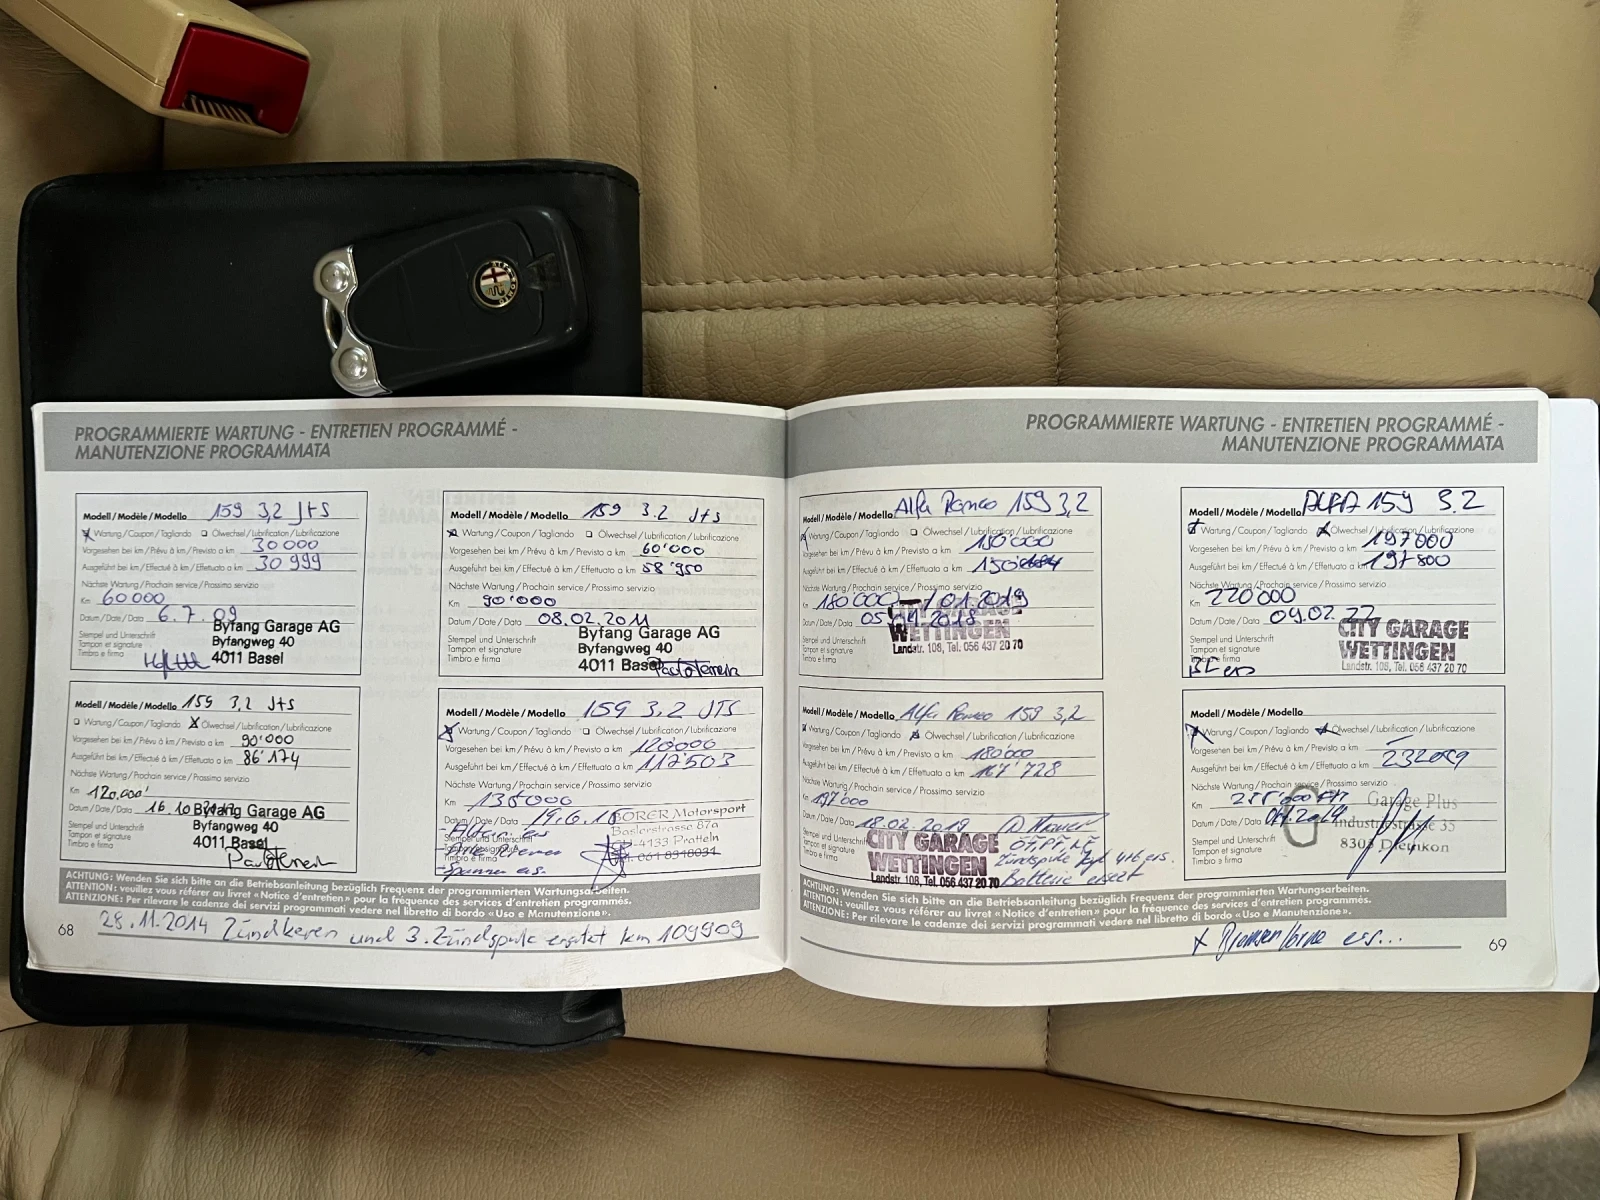 PROGRAMMIERTE WARTUNG - ENTRETIEN PROGRAMMÉ -
MANUTENZIONE PROGRAMMATA
Modell / Modèle / Modello 159 3,2 JtS
x Wartung / Coupon / Tagliando Ölwechsel / Lubrification / Lubrificazione
Vorgesehen bei km / Prévu à km / Previsto a km 30 000
Ausgeführt bei km / Effectué à km / Effettuato a km 30 999
Nächste Wartung / Prochain service / Prossimo servizio
Km 60 000
Datum / Date / Data 6.7.09
Stempel und Unterschrift
Tampon et signature
Timbro e firma
Byfang Garage AG
Byfangweg 40
4011 Basel
Modell / Modèle / Modello 159 3.2 JtS
x Wartung / Coupon / Tagliando Ölwechsel / Lubrification / Lubrificazione
Vorgesehen bei km / Prévu à km / Previsto a km 60'000
Ausgeführt bei km / Effectué à km / Effettuato a km 58'950
Nächste Wartung / Prochain service / Prossimo servizio
Km 90'000
Datum / Date / Data 08.02.2011
Stempel und Unterschrift
Tampon et signature
Timbro e firma
Byfang Garage AG
Byfangweg 40
4011 Basel
Modell / Modèle / Modello 159 3,2 JtS
Wartung / Coupon / Tagliando x Ölwechsel / Lubrification / Lubrificazione
Vorgesehen bei km / Prévu à km / Previsto a km 90'000
Ausgeführt bei km / Effectué à km / Effettuato a km 86'174
Nächste Wartung / Prochain service / Prossimo servizio
Km 120,000'
Datum / Date / Data 16.10
Stempel und Unterschrift
Tampon et signature
Timbro e firma
Byfang Garage AG
Byfangweg 40
4011 Basel
Modell / Modèle / Modello 159 3.2 JTS
x Wartung / Coupon / Tagliando Ölwechsel / Lubrification / Lubrificazione
Vorgesehen bei km / Prévu à km / Previsto a km 120'000
Ausgeführt bei km / Effectué à km / Effettuato a km 112503
Nächste Wartung / Prochain service / Prossimo servizio
Km
Datum / Date / Data 19.6.
Stempel und Unterschrift
Tampon et signature
Timbro e firma
BORER Motorsport
Baslerstrasse 87a
CH-4133 Pratteln
Tel. 061 8918031
ACHTUNG: Wenden Sie sich bitte an die Betriebsanleitung bezüglich Frequenz der programmierten Wartungsarbeiten.
ATTENTION: veuillez vous référer au livret «Notice d'entretien» pour la fréquence des services d'entretien programmés.
ATTENZIONE: Per rilevare le cadenze dei servizi programmati vedere nel libretto di bordo «Uso e Manutenzione».
68 28.11.2014 Zündkerzen und 3. Zündspule ersetzt km 109909
PROGRAMMIERTE WARTUNG - ENTRETIEN PROGRAMMÉ -
MANUTENZIONE PROGRAMMATA
Modell / Modèle / Modello Alfa Romeo 159 3,2
x Wartung / Coupon / Tagliando Ölwechsel / Lubrification / Lubrificazione
Vorgesehen bei km / Prévu à km / Previsto a km 150'000
Ausgeführt bei km / Effectué à km / Effettuato a km
Nächste Wartung / Prochain service / Prossimo servizio
Km 180000 / 01.2019
Datum / Date / Data
Stempel und Unterschrift
Tampon et signature
Timbro e firma
CITY GARAGE
WETTINGEN
Landstr. 108, Tel. 056 437 20 70
Modell / Modèle / Modello ALFA 159 3.2
x Wartung / Coupon / Tagliando x Ölwechsel / Lubrification / Lubrificazione
Vorgesehen bei km / Prévu à km / Previsto a km 197000
Ausgeführt bei km / Effectué à km / Effettuato a km 197800
Nächste Wartung / Prochain service / Prossimo servizio
Km 220'000
Datum / Date / Data 09.02.22
Stempel und Unterschrift
Tampon et signature
Timbro e firma
CITY GARAGE
WETTINGEN
Landstr. 108, Tel. 056 437 20 70
Modell / Modèle / Modello Alfa Romeo 159 3,2
x Wartung / Coupon / Tagliando x Ölwechsel / Lubrification / Lubrificazione
Vorgesehen bei km / Prévu à km / Previsto a km 180'000
Ausgeführt bei km / Effectué à km / Effettuato a km 167'728
Nächste Wartung / Prochain service / Prossimo servizio
Km 197'000
Datum / Date / Data 18.02.2019
Stempel und Unterschrift
Tampon et signature
Timbro e firma
CITY GARAGE
WETTINGEN
Landstr. 108, Tel. 056 437 20 70
Batterie ersetzt
Modell / Modèle / Modello
x Wartung / Coupon / Tagliando x Ölwechsel / Lubrification / Lubrificazione
Vorgesehen bei km / Prévu à km / Previsto a km
Ausgeführt bei km / Effectué à km / Effettuato a km
Nächste Wartung / Prochain service / Prossimo servizio
Km
Datum / Date / Data
Stempel und Unterschrift
Tampon et signature
Timbro e firma
Garage Plus
Industriestrasse 35
8305 Dietlikon
ACHTUNG: Wenden Sie sich bitte an die Betriebsanleitung bezüglich Frequenz der programmierten Wartungsarbeiten.
ATTENTION: veuillez vous référer au livret «Notice d'entretien» pour la fréquence des services d'entretien programmés.
ATTENZIONE: Per rilevare le cadenze dei servizi programmati vedere nel libretto di bordo «Uso e Manutenzione».
x Bremsen vorne ers...
69